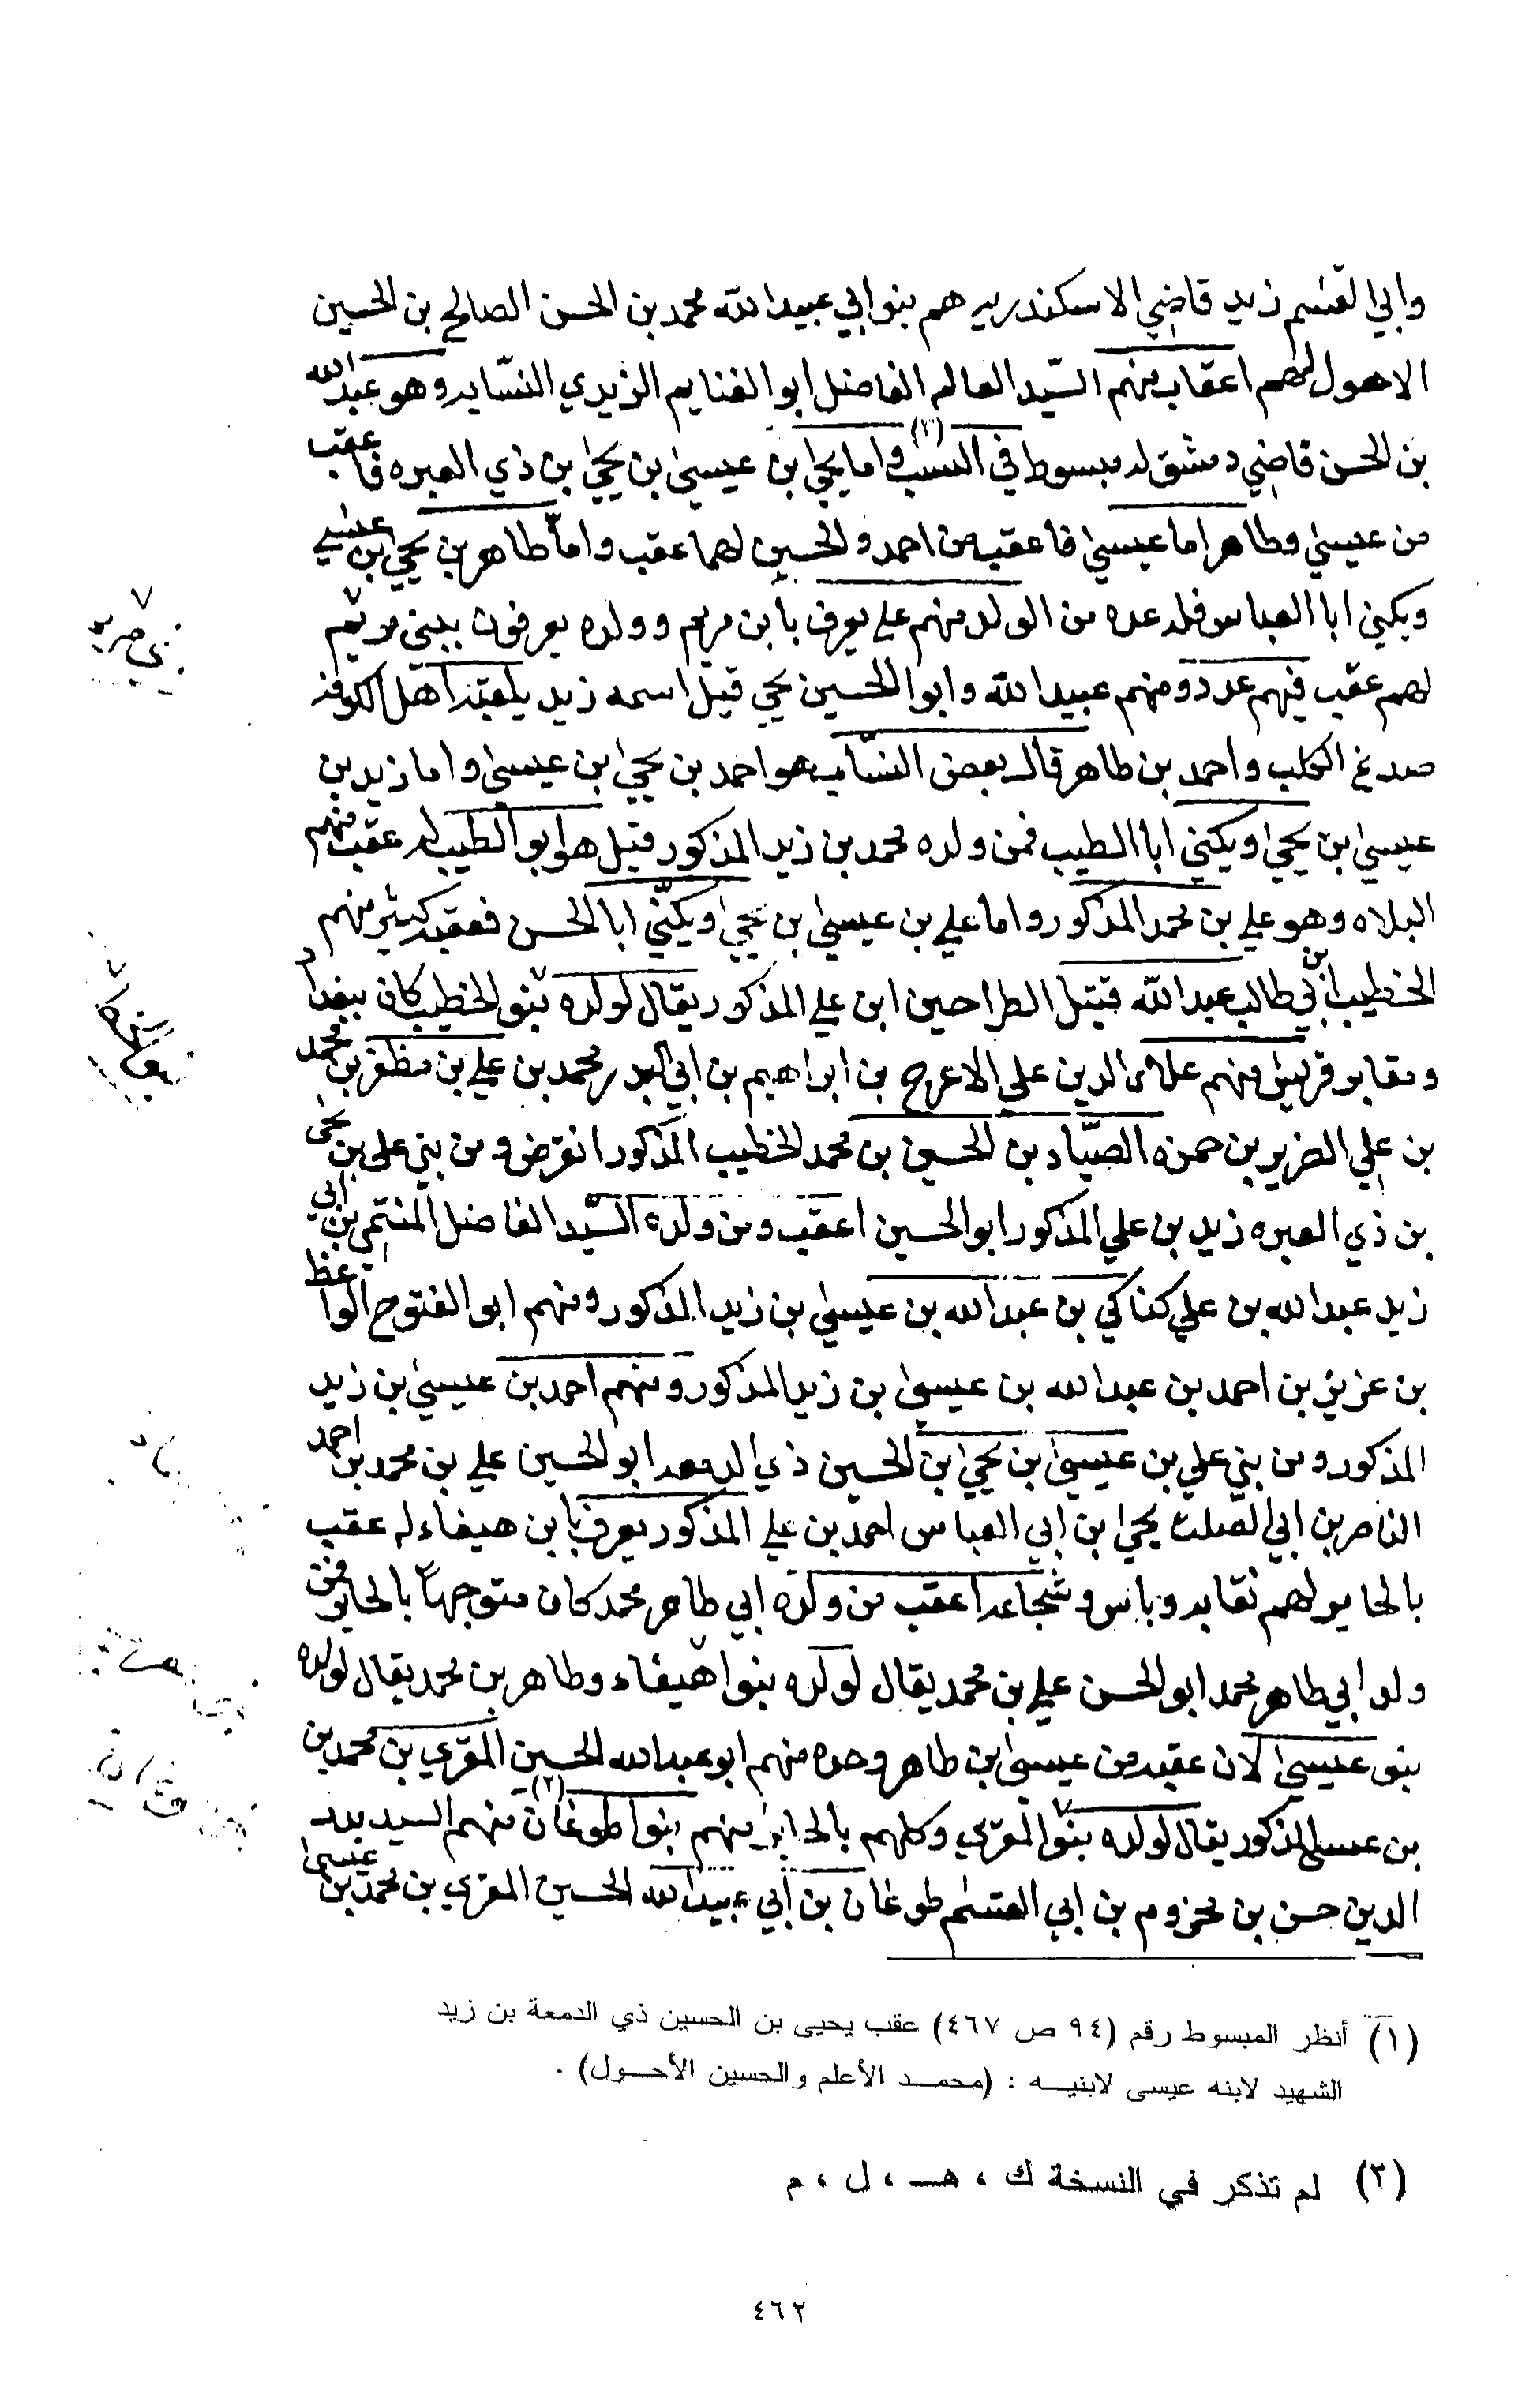 وابي القسم زيد قاضي الاسكندريه هم بنو ابي عبيد الله محمد بن الحسن الصالح بن الحسين
الاحول لهم اعقاب منهم السّيد العالم الفاضل ابو الغنايم الزيدي النسّابه وهو عبد الله
بن الحسن قاضي دمشق له مبسوط في النسب (١) واما يحيى بن عيسى بن يحيى بن ذي العبره فاعقب
من عيسى وطاهر اما عيسى فاعقب من احمد والحسين لهما عقب وامّا طاهر بن يحيى بن عيسى
ويكنى ابا العباس فله عده من الولد منهم علي يعرف بابن مريم وولده يعرفون ببني مريم
لهم عقب فيهم عدد ومنهم عبيد الله وابو الحسين يحيى قيل اسمه زيد يلقبه اهل الكوفه
صدغ الكلب واحمد بن طاهر قال بعض النسّاب هو احمد بن يحيى بن عيسى واما زيد بن
عيسى بن يحيى ويكنى ابا الطيب فمن ولده محمد بن زيد المذكور قيل هو ابو الطيب له عقب منهم
البلاه وهو علي بن محمد المذكور واما علي بن عيسى بن يحيى ويكنّى ابا الحسن فعقبه كثير منهم
الخطيب بن ابي طالب عبد الله قتيل الطراحين ابن علي المذكور يقال لولده بنو الخطيب كان ببغداد
ومقابر قريش منهم علاء الدين علي الاعرج بن ابراهيم بن ابي البدر محمد بن علي بن مظفر بن محمد
بن علي الضرير بن حمزه الصيّاد بن الحسين بن محمد الخطيب المذكور انقرض ومن بني علي بن يحيى
بن ذي العبره زيد بن علي المذكور ابو الحسين اعقب ومن ولده السّيد الفاضل المنتمي بن ابي
زيد عبد الله بن علي كناكي بن عبد الله بن عيسى بن زيد المذكور ومنهم ابو الفتوح الواعظ
بن عزيز بن احمد بن عبد الله بن عيسى بن زيد المذكور ومنهم احمد بن عيسى بن زيد
المذكور ومن بني علي بن عيسى بن يحيى بن الحسين ذي الدمعه ابو الحسين علي بن محمد بن احمد
الناصر بن ابي الصلت يحيى بن ابي العباس احمد بن علي المذكور يعرف بابن هيفاء له عقب
بالحاير لهم نقابه وباس وشجاعه اعقب من ولده ابي طاهر محمد كان متوجهاً بالحاير فمن
ولد ابي طاهر محمد ابو الحسن علي بن محمد يقال لولده بنوا هيفاء وطاهر بن محمد يقال لولده
بنو عيسى لان عقبه من عيسى بن طاهر وحده منهم ابو عبد الله الحسين المقري بن محمد بن
بن عيسى المذكور يقال لولده بنو المقري وكلهم بالحاير منهم بنوا طوغان (٢) منهم السيد بدر
الدين حسن بن مخزوم بن ابي القسم طوغان بن ابي عبيد الله الحسين المقري بن محمد بن عيسى
(١) أنظر المبسوط رقم (٩٤ ص ٤٦٧) عقب يحيى بن الحسين ذي الدمعة بن زيد
الشهيد لابنه عيسى لابنيه : (محمد الأعلم والحسين الأحول) .
(٢) لم تذكر في النسخة ك ، هـ ، ل ، م
٤٦٢